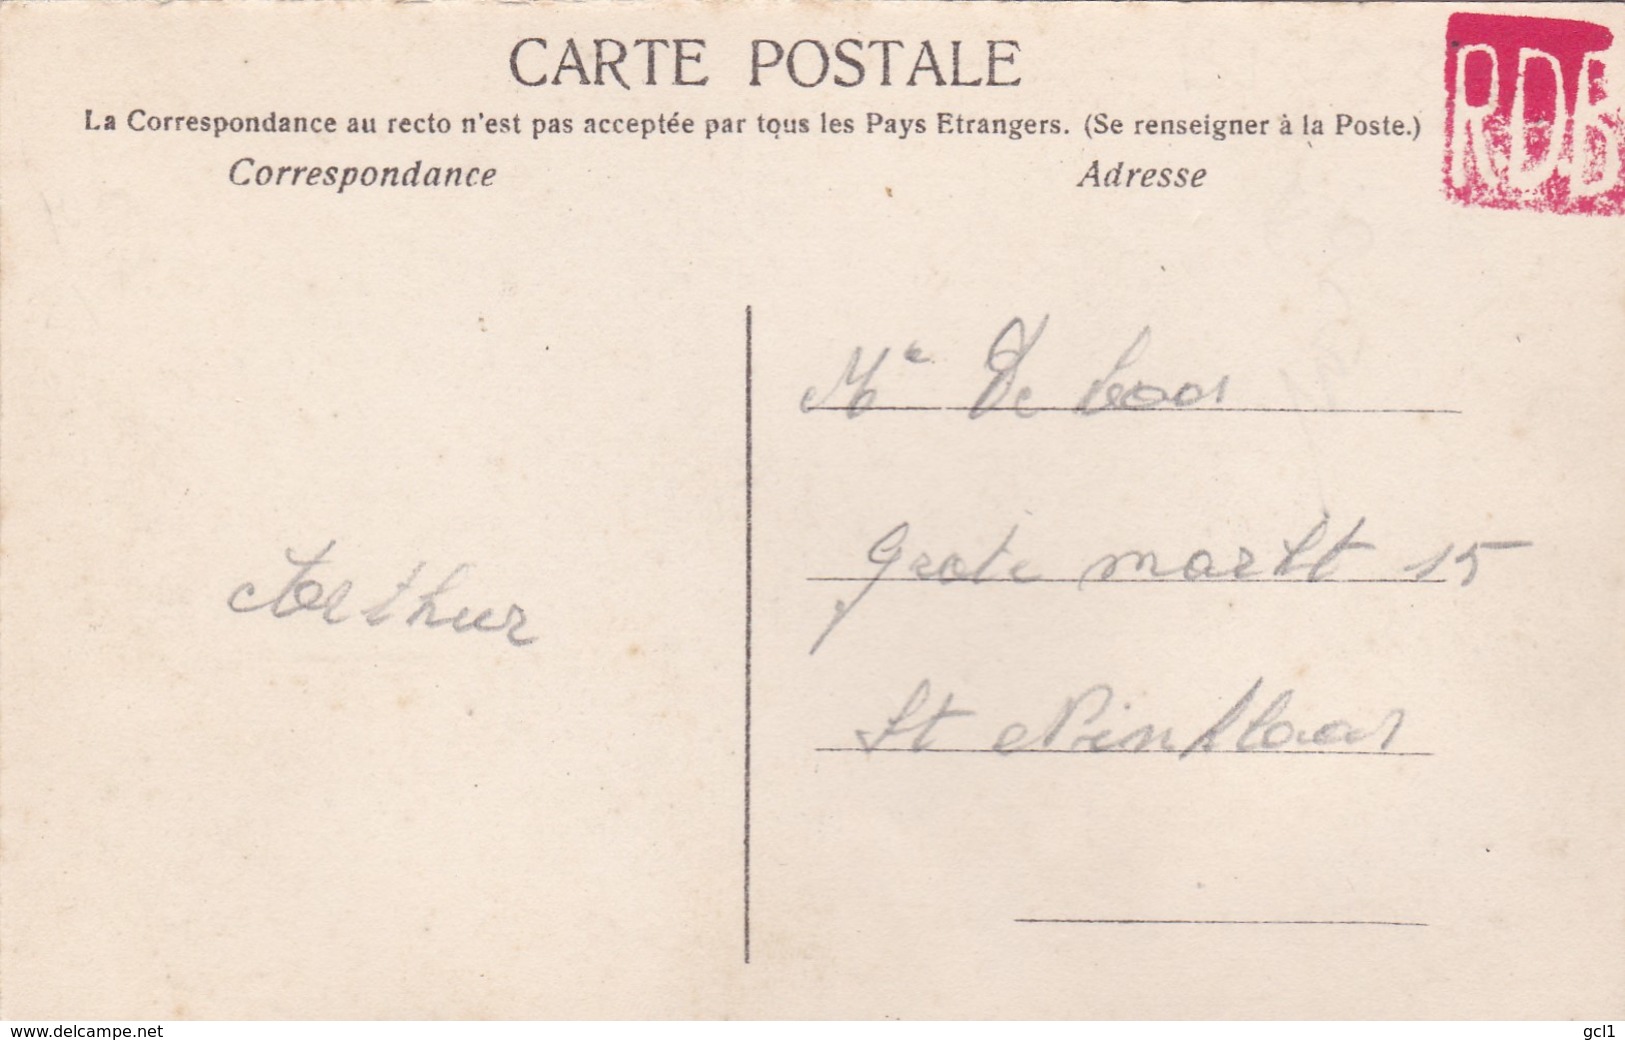 CARTE POSTALE
La Correspondance au recto n'est pas acceptée par tous les Pays Etrangers. (Se renseigner à la Poste.)
Correspondance
Adresse
RDB
Mr De Loos
Grote markt 15
Arthur
St Niklaas
www.delcampe.net
gcl1